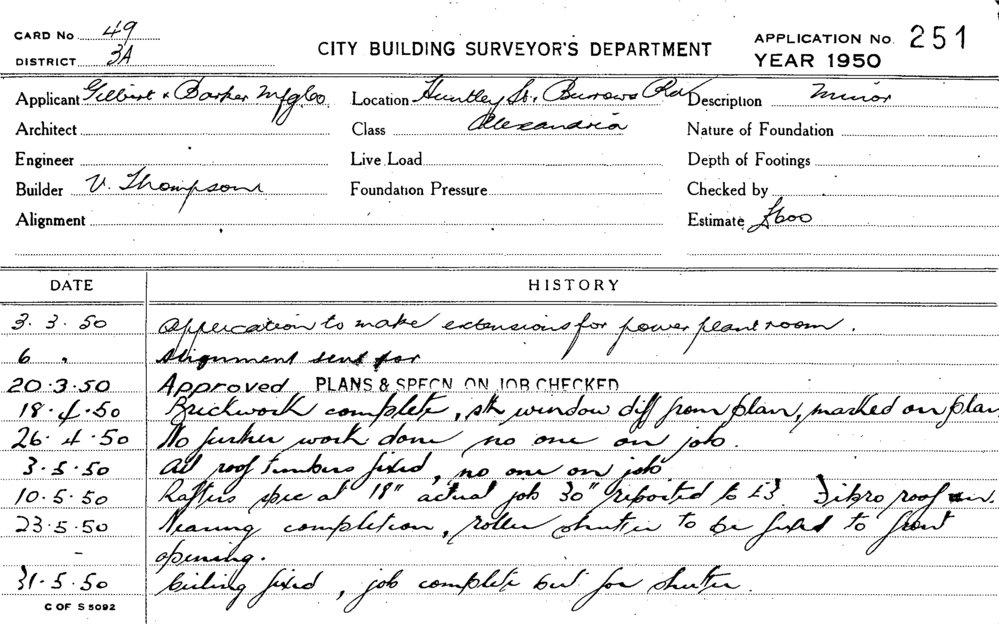 CARD No 49
DISTRICT 3A
CITY BUILDING SURVEYOR'S DEPARTMENT
APPLICATION No. 251
YEAR 1950
Applicant Gilbert & Barker Mfg Co. Location Huntley St, Burrows Rd Description Minor
Architect Class Alexandria Nature of Foundation
Engineer Live Load Depth of Footings
Builder V. Thompson Foundation Pressure Checked by
Alignment Estimate £600
DATE HISTORY
3. 3. 50 Application to make extensions for power plant room.
6 " Alignment sent for
20.3.50 Approved PLANS & SPECN ON JOB CHECKED
18.4.50 Brickwork complete, sth window diff from plan, marked on plan
26.4.50 No further work done no one on job.
3.5.50 All roof timbers fixed, no one on job
10.5.50 Rafters spec at 18" actual job 30" reported to E3 Fibro roof
23.5.50 Nearing completion, roller shutter to be fixed to front
- opening.
31.5.50 Ceiling fixed, job complete but for shutter
C OF S 5092